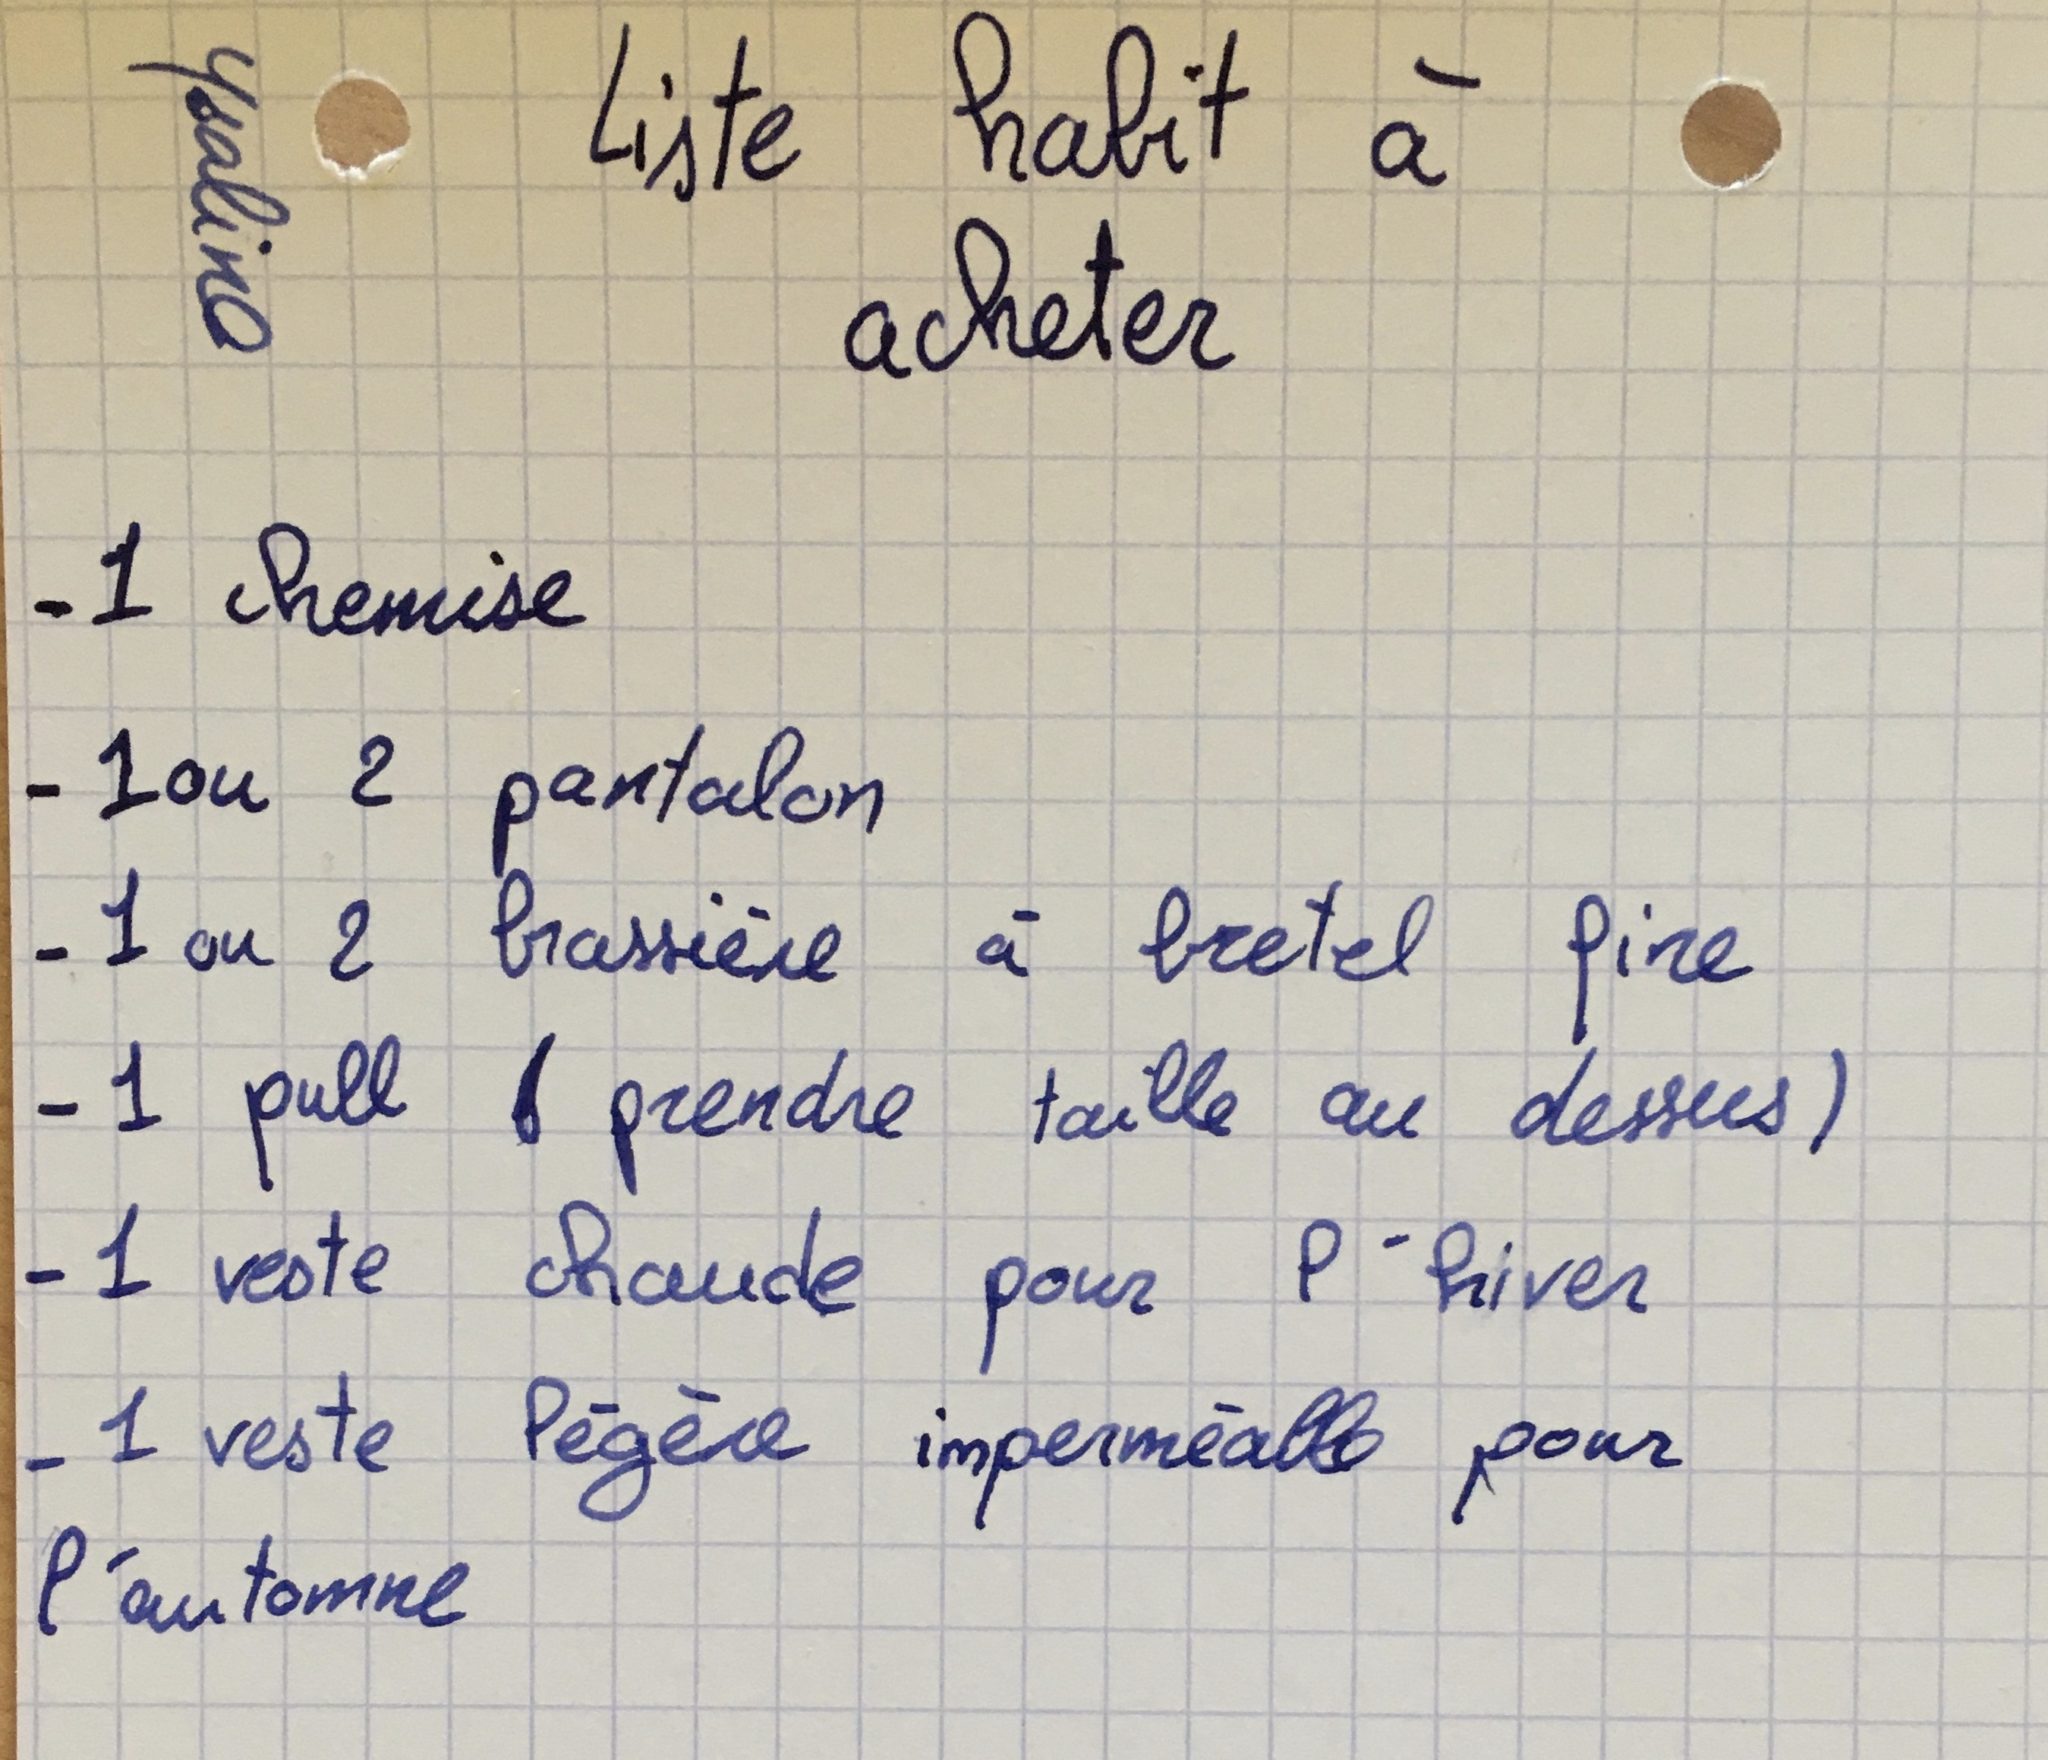 Ysaline
Liste habit à
acheter
- 1 chemise
- 1 ou 2 pantalon
- 1 ou 2 brassière à bretel fine
- 1 pull (prendre taille au dessus)
- 1 veste chaude pour l'hiver
- 1 veste légère imperméable pour
l'automne